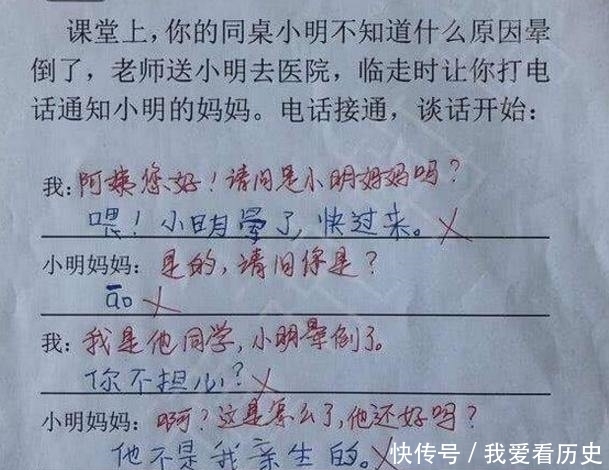 课堂上，你的同桌小明不知道什么原因晕
倒了，老师送小明去医院，临走时让你打电
话通知小明的妈妈。电话接通，谈话开始：
我：阿姨您好！请问是小明妈妈吗？
喂！小明晕了，快过来。
小明妈妈：是的，请问你是？
āo
我：我是他同学，小明晕倒了。
你不担心？
小明妈妈：啊？这是怎么了，他还好吗？
他不是我亲生的。
快传号／我爱看历史